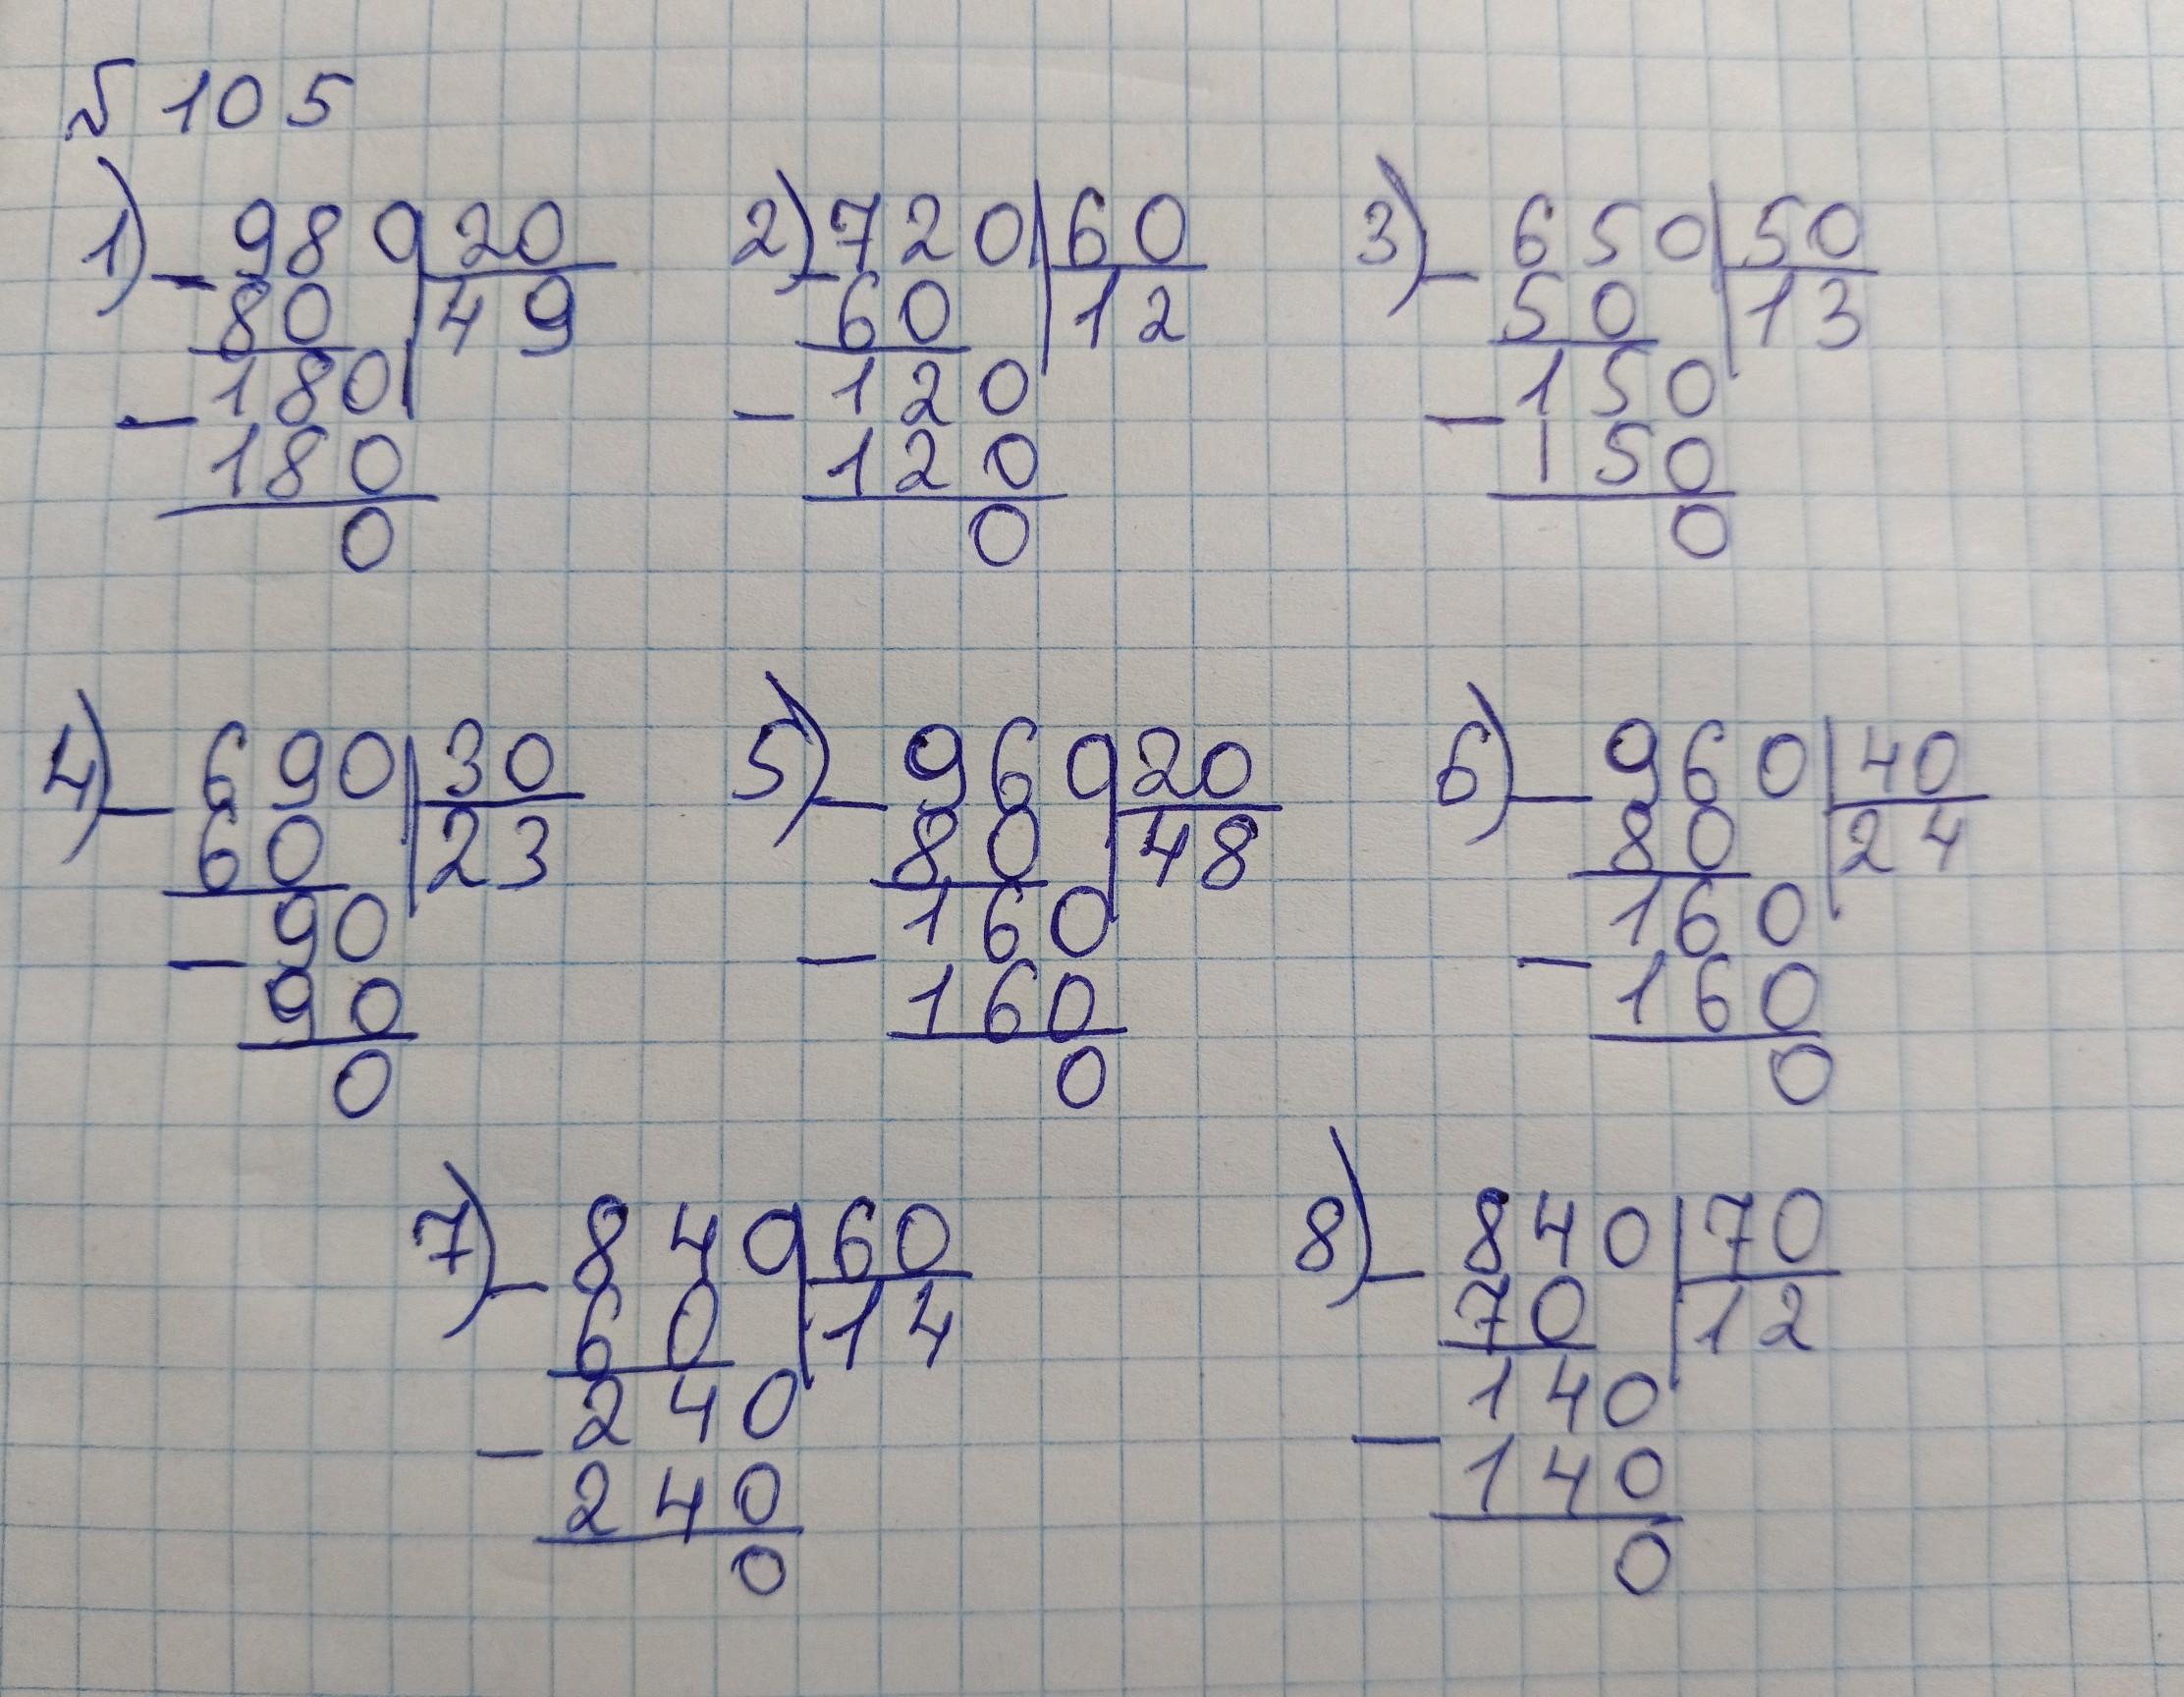 № 105
1) - 980 | 20   2) - 720 | 60   3) - 650 | 50
80 | 49   60 | 12   50 | 13
- 180   - 120   - 150
180   120   150
0   0   0
4) - 690 | 30   5) - 960 | 20   6) - 960 | 40
60 | 23   80 | 48   80 | 24
- 90   - 160   - 160
90   160   160
0   0   0
7) - 840 | 60   8) - 840 | 70
60 | 14   70 | 12
- 240   - 140
240   140
0   0